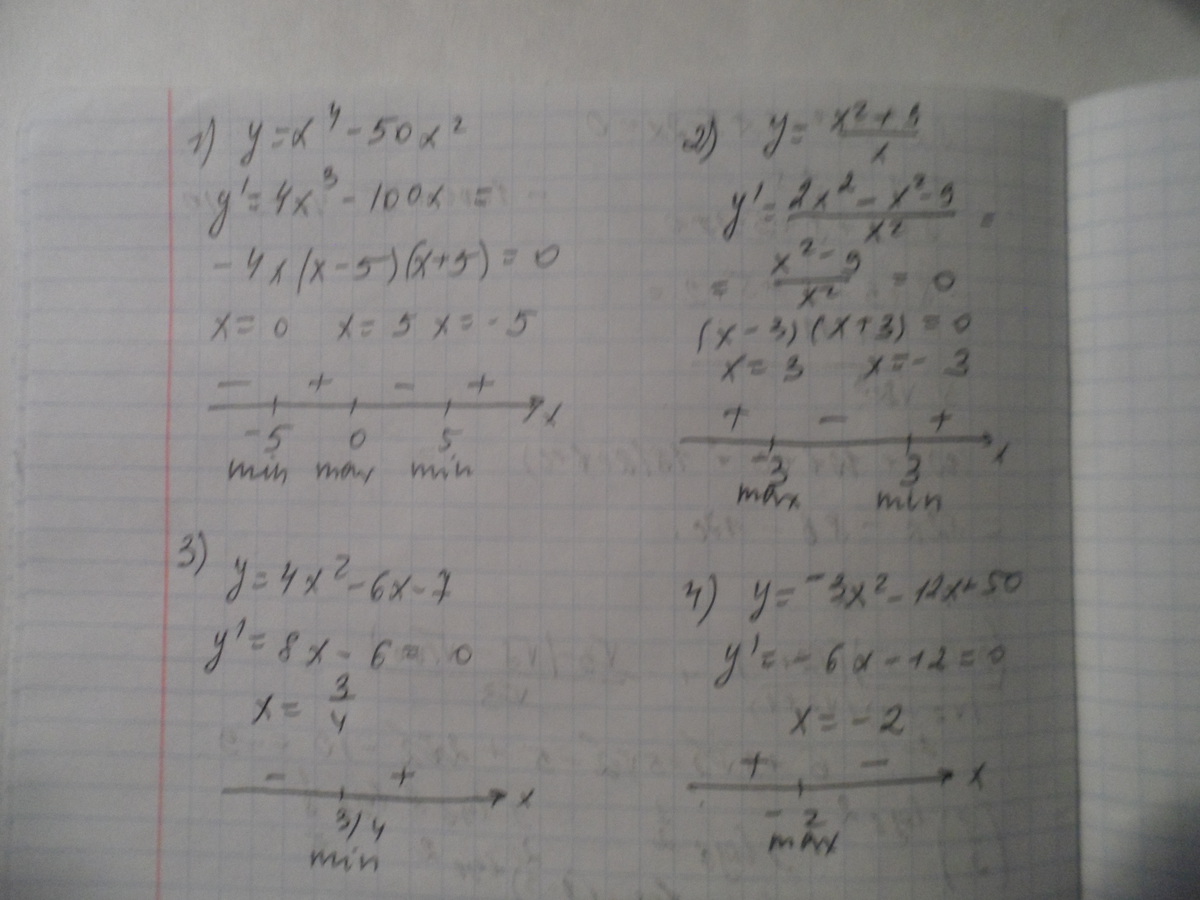 1) y = x⁴ - 50x²
y' = 4x³ - 100x =
- 4x(x-5)(x+5) = 0
x = 0 x = 5 x = -5
- + - +
-5 0 5 x
min max min
2) y = (x² + 9)/x
y' = (2x² - x² - 9)/x² =
= (x² - 9)/x² = 0
(x - 3)(x + 3) = 0
x = 3 x = - 3
+ - +
-3 3 x
max min
3)
y = 4x² - 6x - 7
y' = 8x - 6 = 0
x = 3/4
- +
3/4 x
min
4) y = -3x² - 12x + 50
y' = - 6x - 12 = 0
x = - 2
+ -
-2 x
max